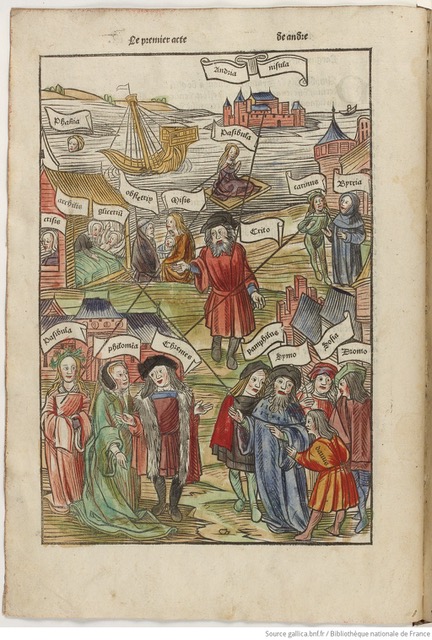 Le premier acte de andre
Andria nisula
Phania
Pasibula
carinus
Byrria
archilis
glicerii
obstetrix
Misis
crisis
Crito
Pasibula
philomia
Chremes
pamphilus
Symo
Sosia
Dromo
Source gallica.bnf.fr / Bibliothèque nationale de France